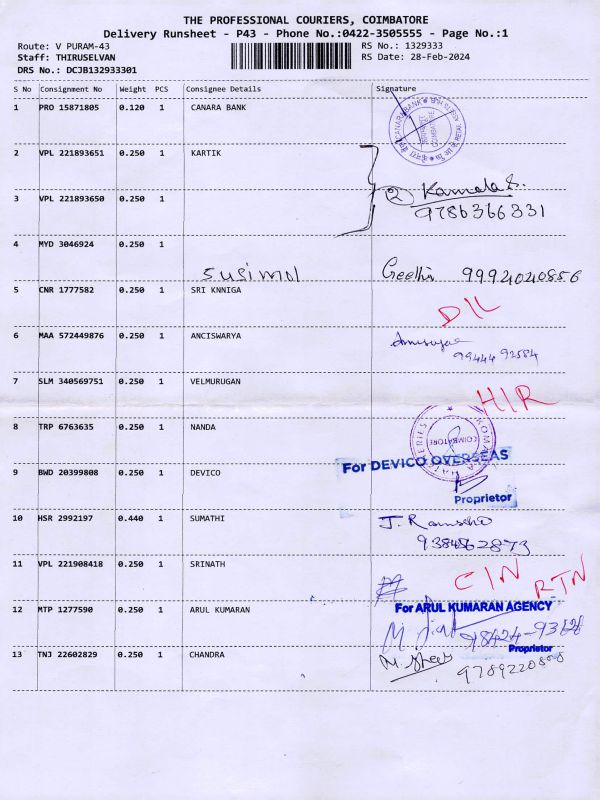 THE PROFESSIONAL COURIERS, COIMBATORE
Delivery Runsheet - P43 - Phone No.:0422-3505555 - Page No.:1
Route: V PURAM-43 RS No.: 1329333
Staff: THIRUSELVAN RS Date: 28-Feb-2024
DRS No.: DCJB132933301
S No Consignment No Weight PCS Consignee Details Signature
1 PRO 15871805 0.120 1 CANARA BANK
CANARA BANK
COIMBATORE
2 VPL 221893651 0.250 1 KARTIK
② Kamala S.
3 VPL 221893650 0.250 1
9786366331
4 MYD 3046924 0.250 1
Geetha 9994020856
5 CNR 1777582 0.250 1 SRI KNNIGA
D/L
6 MAA 572449876 0.250 1 ANCISWARYA
99444 92584
7 SLM 340569751 0.250 1 VELMURUGAN
H/R
8 TRP 6763635 0.250 1 NANDA
COIMBATORE
For DEVICO OVERSEAS
9 BWD 20399808 0.250 1 DEVICO
Proprietor
10 HSR 2992197 0.440 1 SUMATHI
11 VPL 221908418 0.250 1 SRINATH
C/N RTN
12 MTP 1277590 0.250 1 ARUL KUMARAN
For ARUL KUMARAN AGENCY
Proprietor
13 TNJ 22602829 0.250 1 CHANDRA